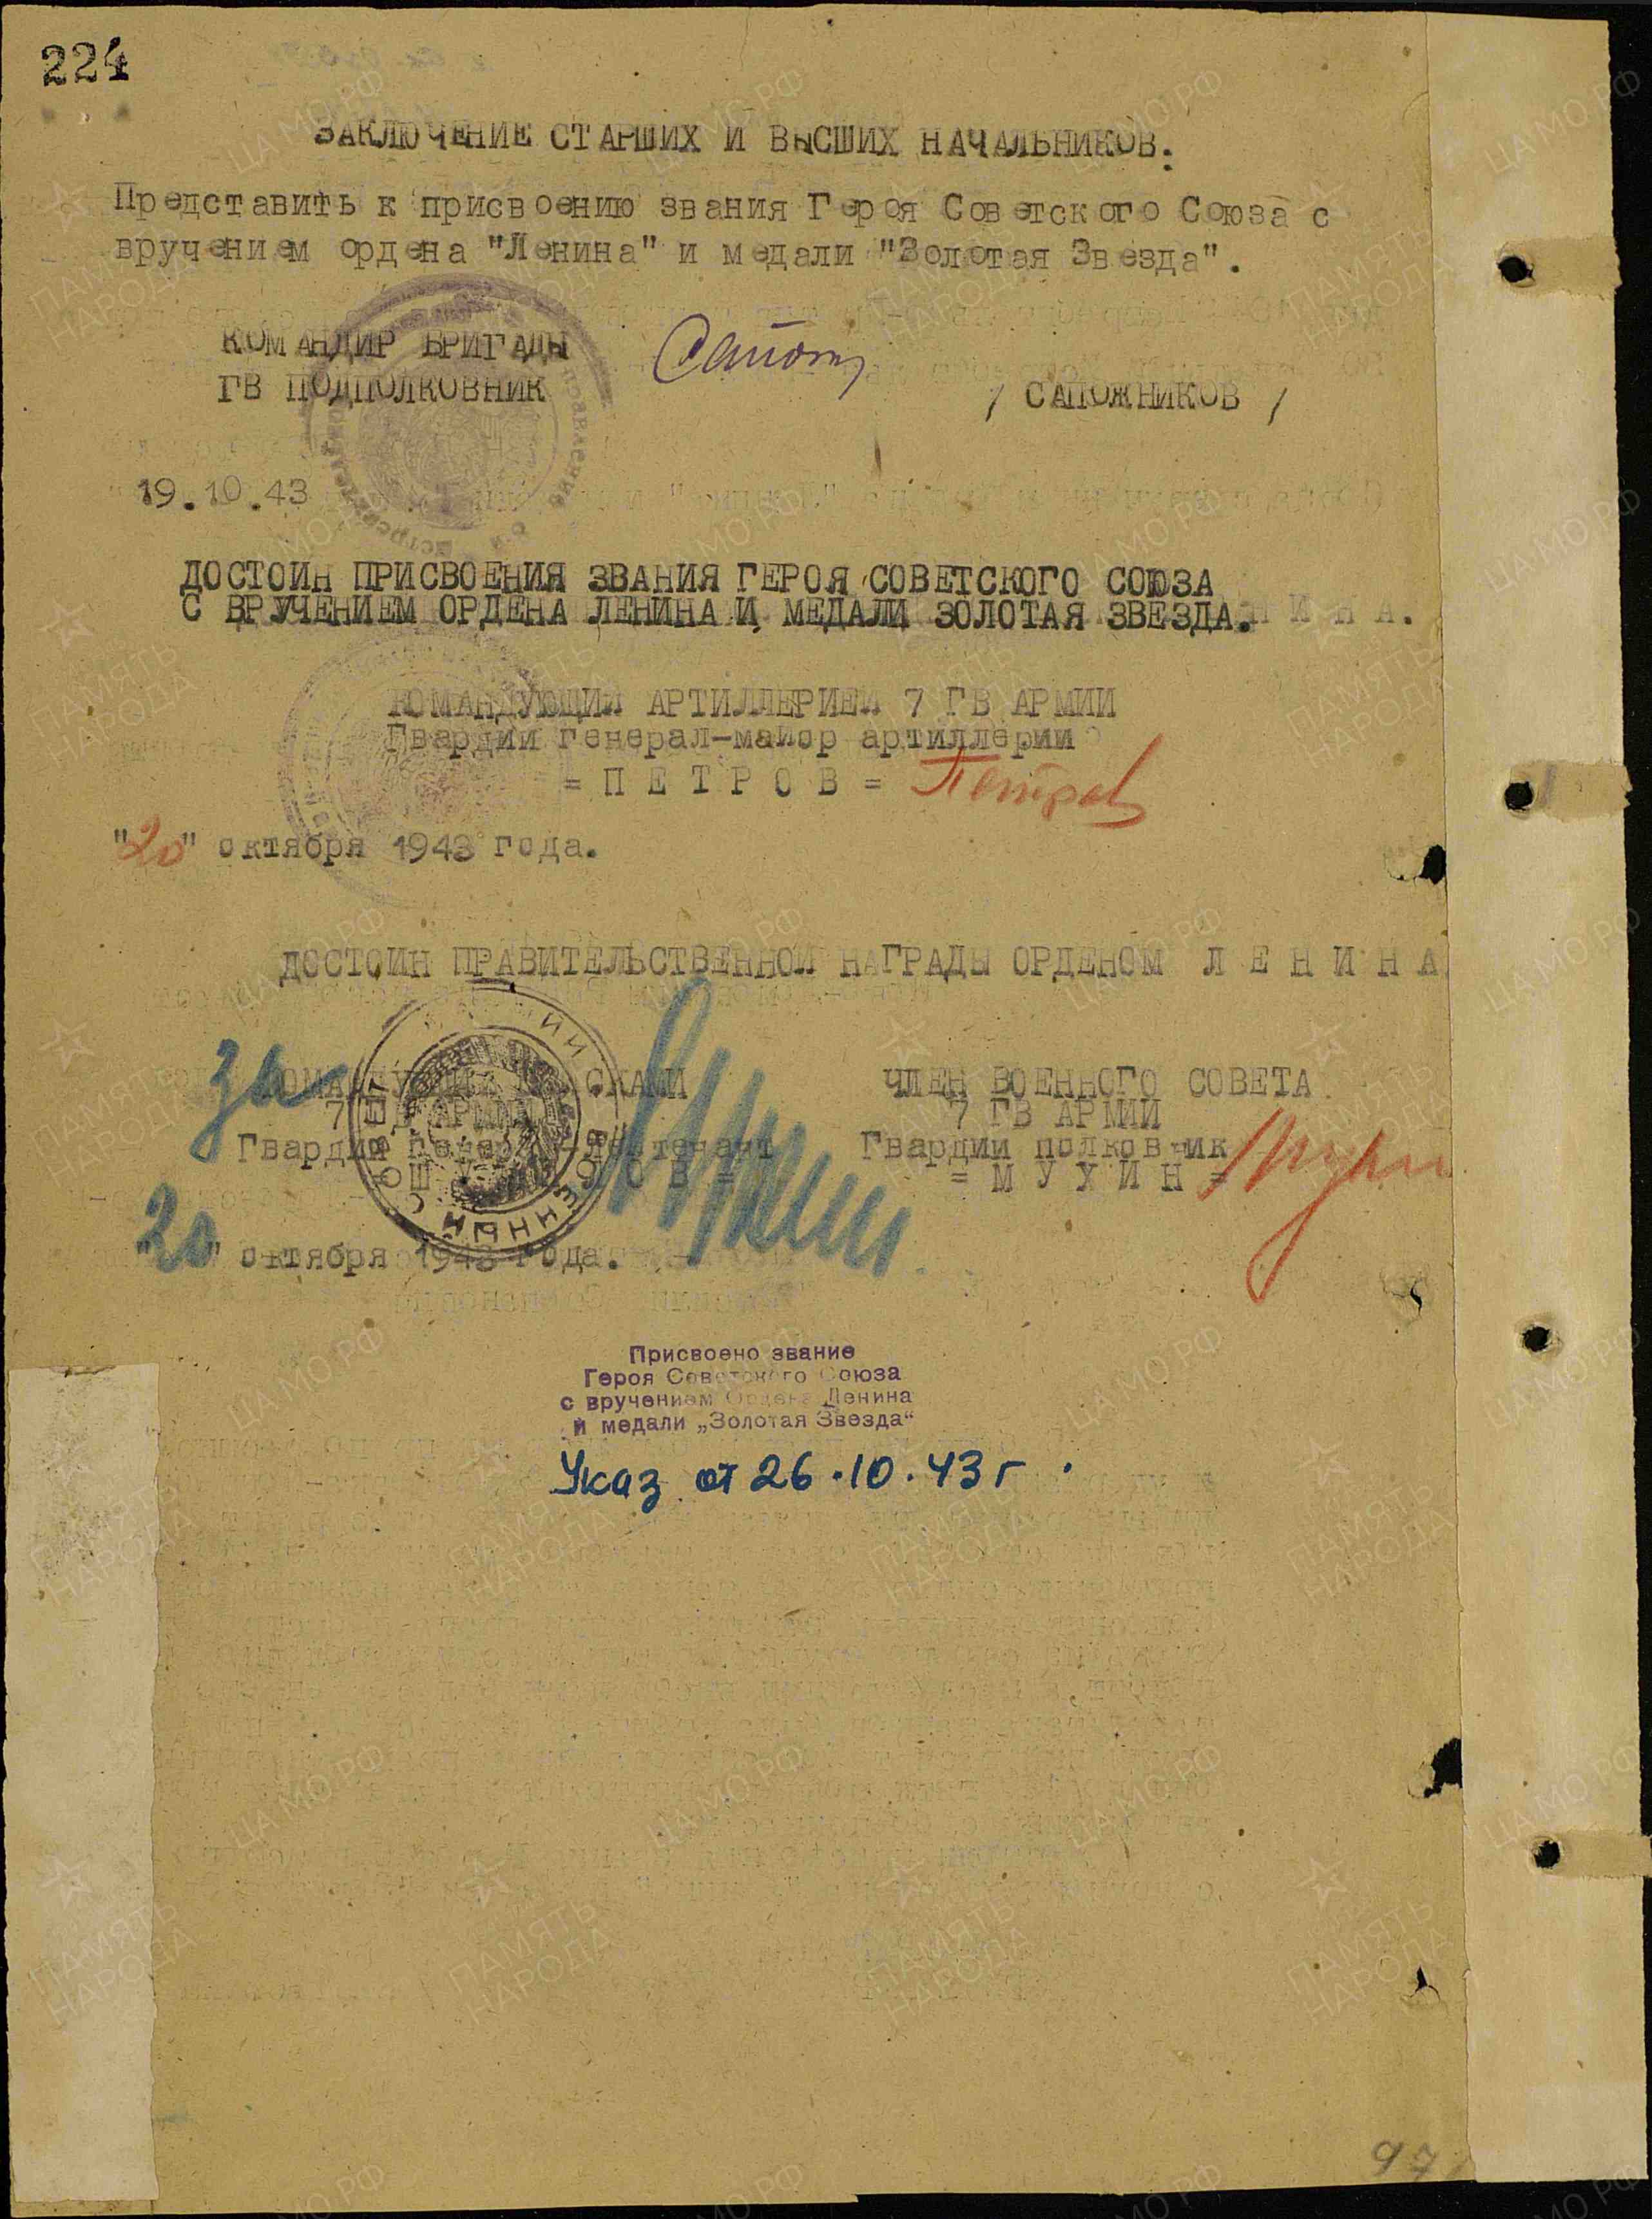 224
ЗАКЛЮЧЕНИЕ СТАРШИХ И ВЫСШИХ НАЧАЛЬНИКОВ.
Представить к присвоению звания Героя Советского Союза с
вручением ордена "Ленина" и медали "Золотая Звезда".
КОМАНДИР БРИГАДЫ
ГВ ПОДПОЛКОВНИК
/ САПОЖНИКОВ /
19.10.43
ДОСТОИН ПРИСВОЕНИЯ ЗВАНИЯ ГЕРОЯ СОВЕТСКОГО СОЮЗА
С ВРУЧЕНИЕМ ОРДЕНА ЛЕНИНА И МЕДАЛИ ЗОЛОТАЯ ЗВЕЗДА.
КОМАНДУЮЩИЙ АРТИЛЛЕРИЕЙ 7 ГВ АРМИИ
Гвардии генерал-майор артиллерии
= П Е Т Р О В = Петров
"20" октября 1943 года.
ДОСТОИН ПРАВИТЕЛЬСТВЕННОЙ НАГРАДЫ ОРДЕНОМ Л Е Н И Н А
за КОМАНДУЮЩИЙ ВОЙСКАМИ ЧЛЕН ВОЕННОГО СОВЕТА
7 ГВ АРМИИ 7 ГВ АРМИИ
Гвардии генерал-лейтенант Гвардии полковник
= М У Х И Н =
"20" октября 1943 года.
Присвоено звание
Героя Советского Союза
с вручением Ордена Ленина
и медали „Золотая Звезда“
Указ от 26.10.43 г.
97
ПАМЯТЬ НАРОДА
ЦАМО.РФ